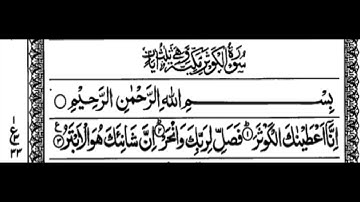 سُوْرَةُ الْكَوْثَرِ مَكِّيَّةٌ وَّهِيَ ثَلٰثُ اٰيَاتٍ
بِسْمِ اللّٰهِ الرَّحْمٰنِ الرَّحِيْمِ ○
اِنَّاۤ اَعْطَيْنٰكَ الْكَوْثَرَ ۟ؕ۱ فَصَلِّ لِرَبِّكَ وَانْحَرْ ۟ؕ۲ اِنَّ شَانِئَكَ هُوَ الْاَبْتَرُ ۟۳
۱
ع
۳۳